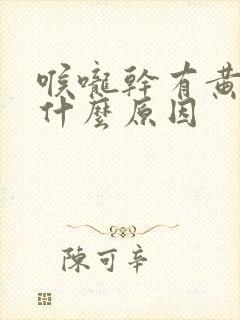 喉嚨幹有黃
什麼原因
陳可辛